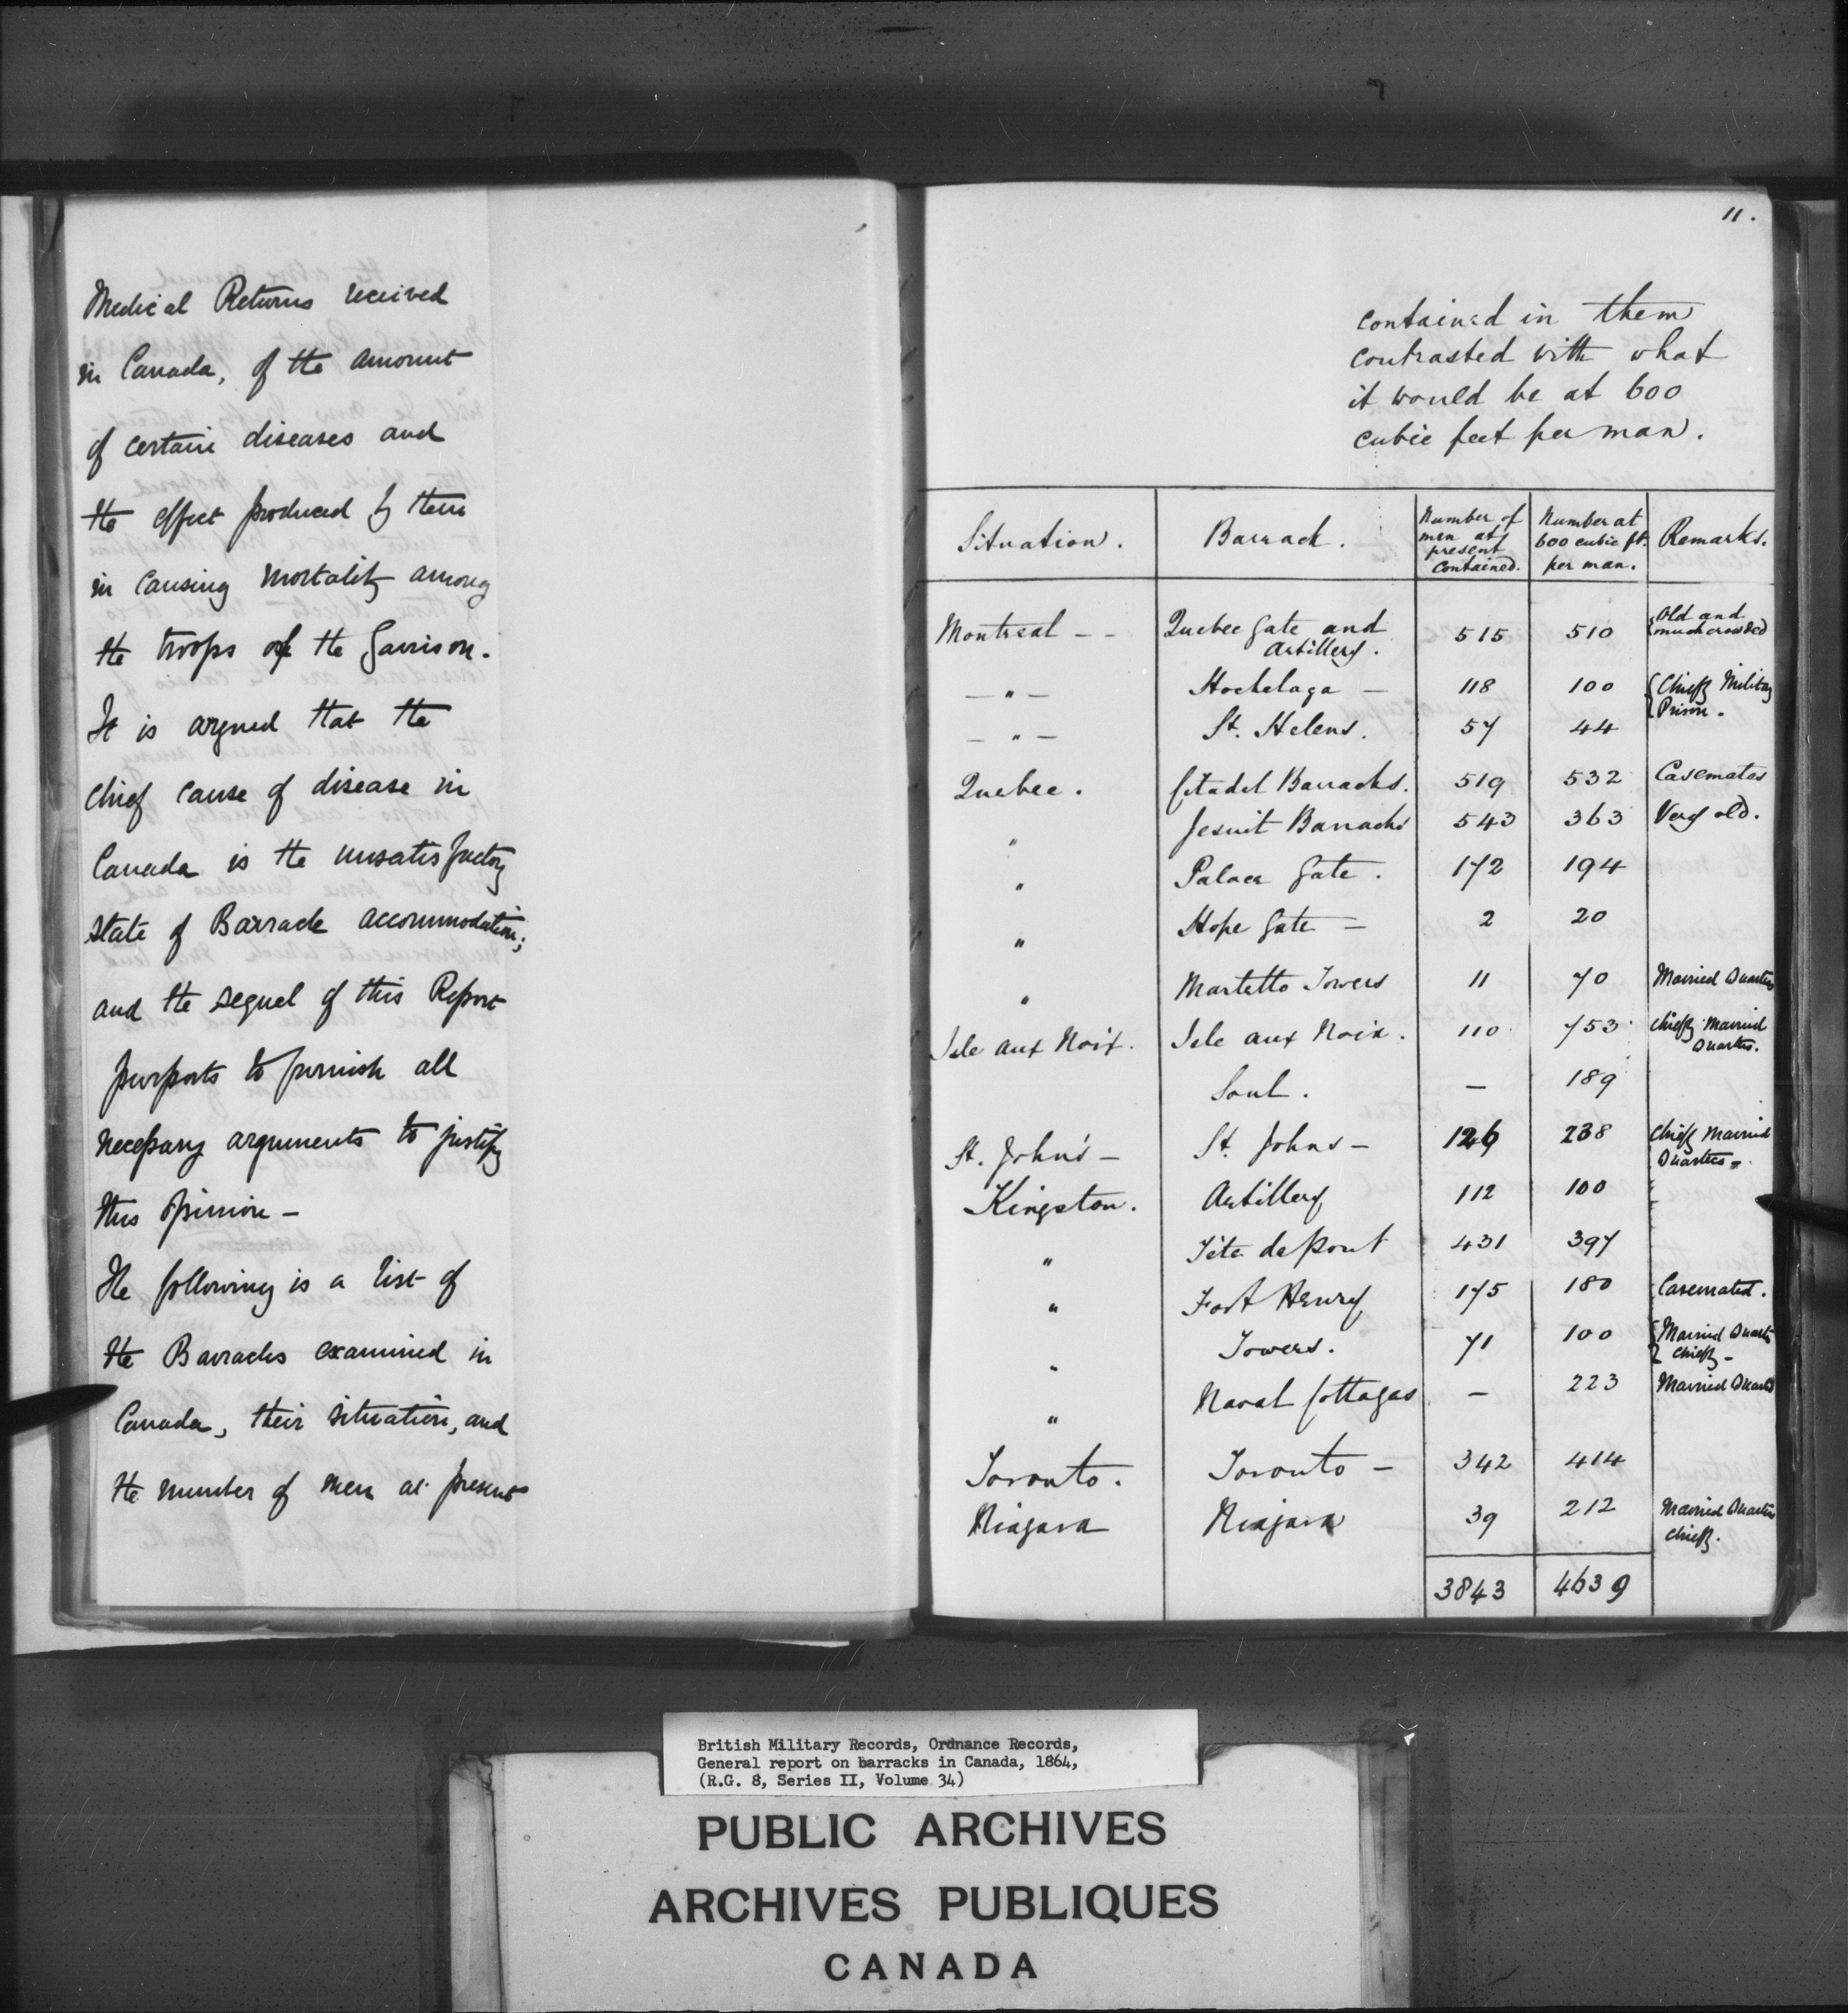 Medical Returns received
in Canada, of the amount
of certain diseases and
the effect produced by them
in causing mortality among
the troops of the Garrison.
It is argued that the
chief cause of disease in
Canada is the unsatisfactory
state of Barrack accommodation;
and the sequel of this Report
purports to furnish all
necessary arguments to justify
this opinion —
The following is a list of
the Barracks examined in
Canada, their situation, and
the number of men at present
11.
contained in them
contrasted with what
it would be at 600
cubic feet per man.
Situation. Barrack. Number of men at present contained. Number at 600 cubic ft. per man. Remarks.
Montreal – – Quebec Gate and Artillery. 515 510 Old and much crowded
— " — Hochelaga — 118 100 Chiefly Military Prison.
— " — St. Helens. 57 44
Quebec. Citadel Barracks. 519 532 Casemates
" Jesuit Barracks 543 363 Very old.
" Palace Gate. 172 194
" Hope Gate — 2 20
" Martello Towers 11 70 Married Quarters
Isle aux Noix. Isle aux Noix. 110 753 Chiefly Married Quarters.
Sorel. — 189
St. John's — St. Johns — 126 238 Chiefly Married Quarters —
Kingston. Artillery 112 100
" Tête de Pont 431 397
" Fort Henry 175 180 Casemated.
" Towers. 71 100 Married Quarts Chiefly —
" Naval Cottages — 223 Married Quarts
Toronto. Toronto — 342 414
Niagara Niagara 39 212 Married Quarters Chiefly.
3843 4639
British Military Records, Ordnance Records,
General report on barracks in Canada, 1864,
(R.G. 8, Series II, Volume 34)
PUBLIC ARCHIVES
ARCHIVES PUBLIQUES
CANADA